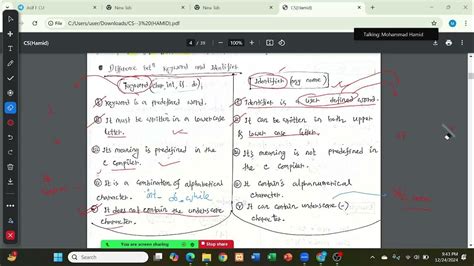 New Tab
New Tab
CS-3(HAMID)
C:/Users/user/Downloads/CS--3(HAMID).pdf
Talking: Mohammad Hamid
CS(Hamid)
4 / 39
100%
Difference betn Keyword and Identifier
Keyword (char, int, if, do)
Identifier (any name)
(i) Keyword is a predefined word.
(i) Identifier is a user defined word.
(ii) It must be written in a lowercase letter.
(ii) It can be written in both upper & lower case letter.
(iii) Its meaning is predefined in the c compiler.
(iii) It's meaning is not predefined in the c compiler.
(iv) It is a combination of alphabetical character.
int do while
(iv) It contains alphanumerical character.
(v) It does not contain the underscore character.
(v) It can contain underscore (-) character.
You are screen sharing
Stop share
9:43 PM
12/24/2024